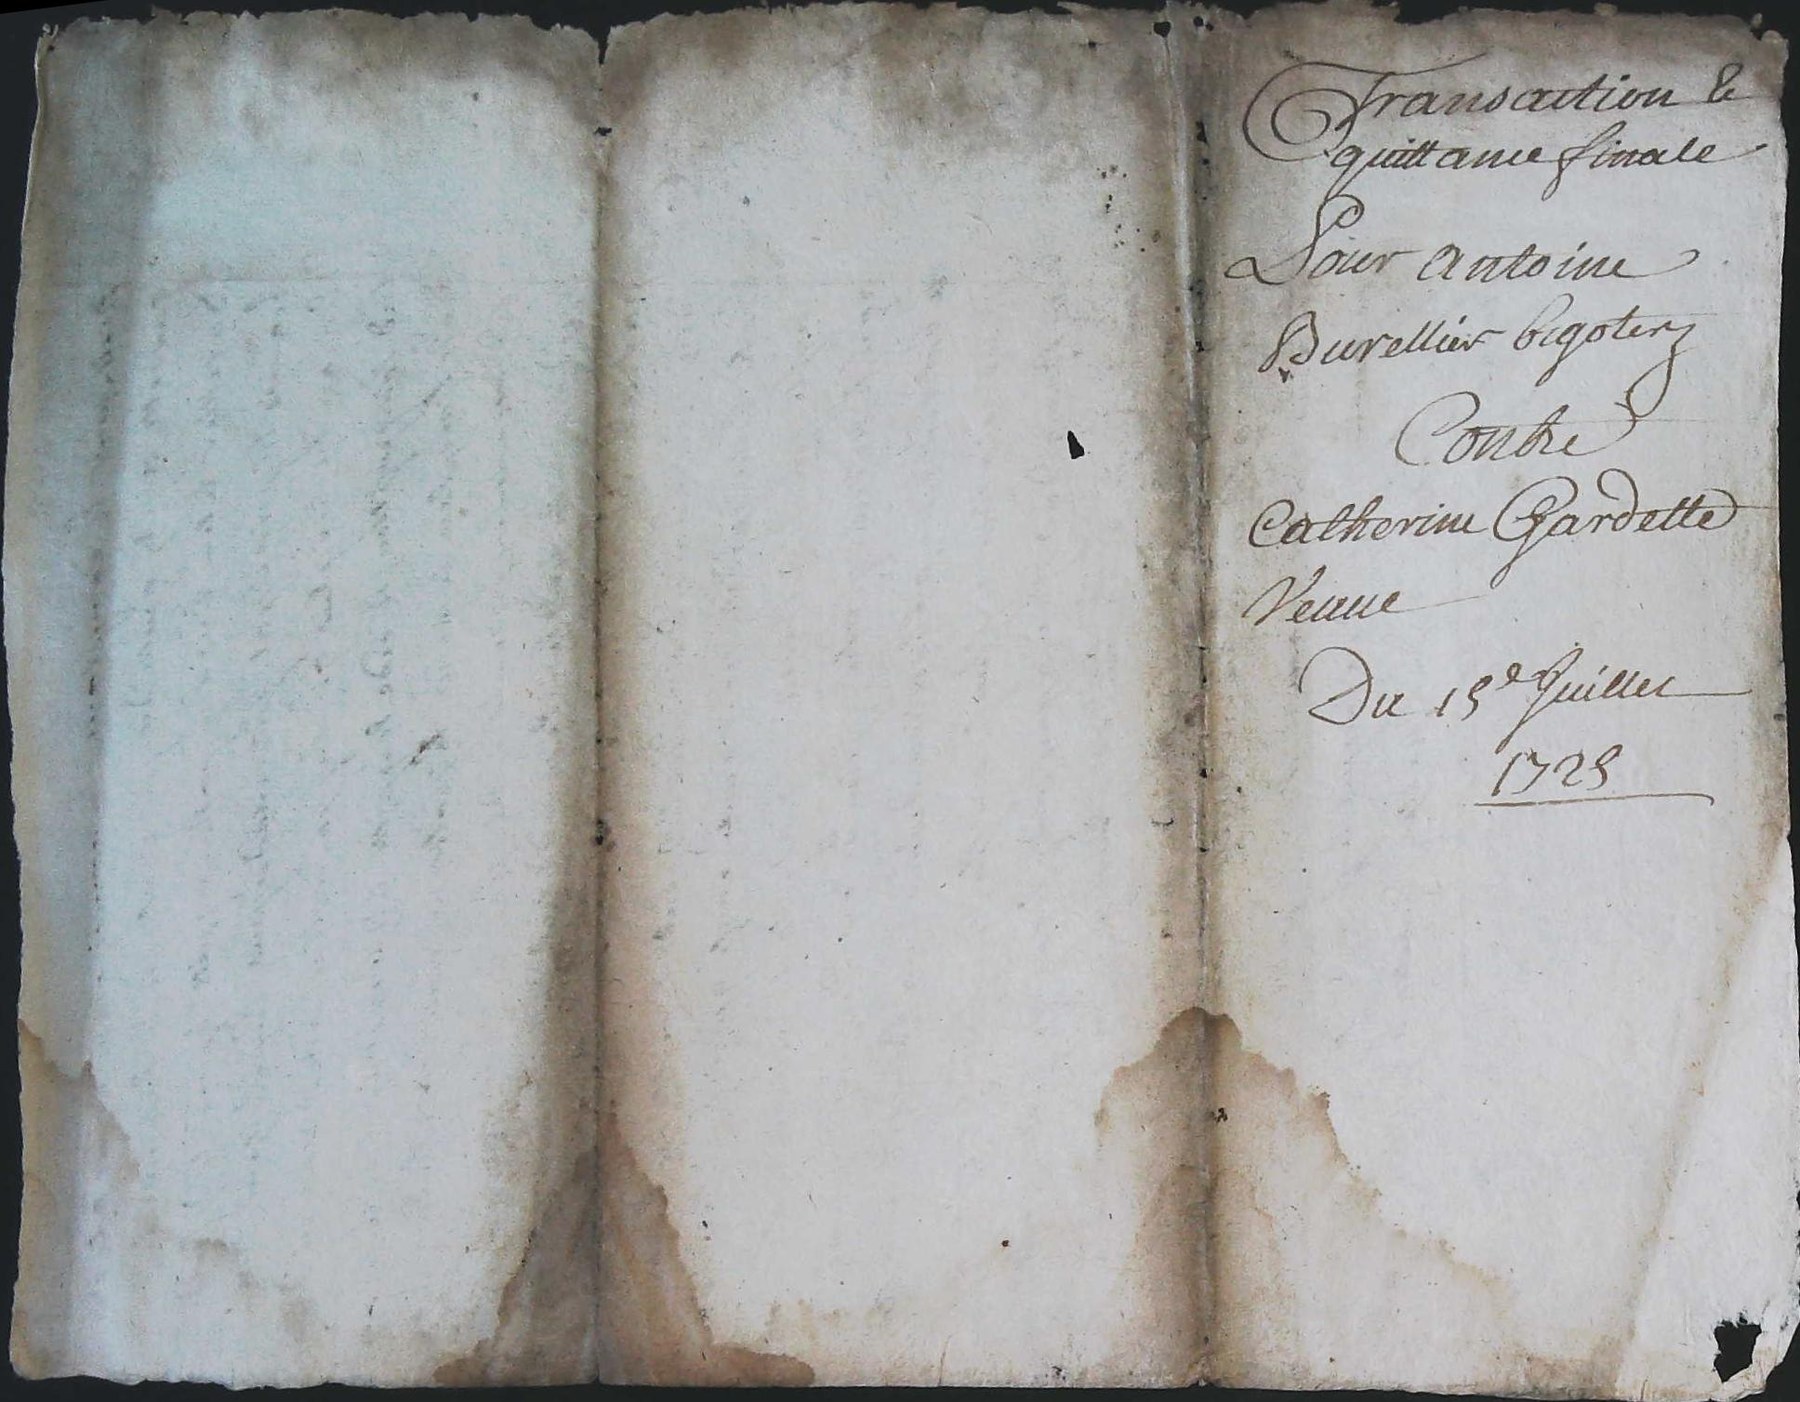 Transaction &
quittance finale
Pour Antoine
Burellier bigotery
Contre
Catherine Gardette
Veuue
Du 15e Juillet
1725